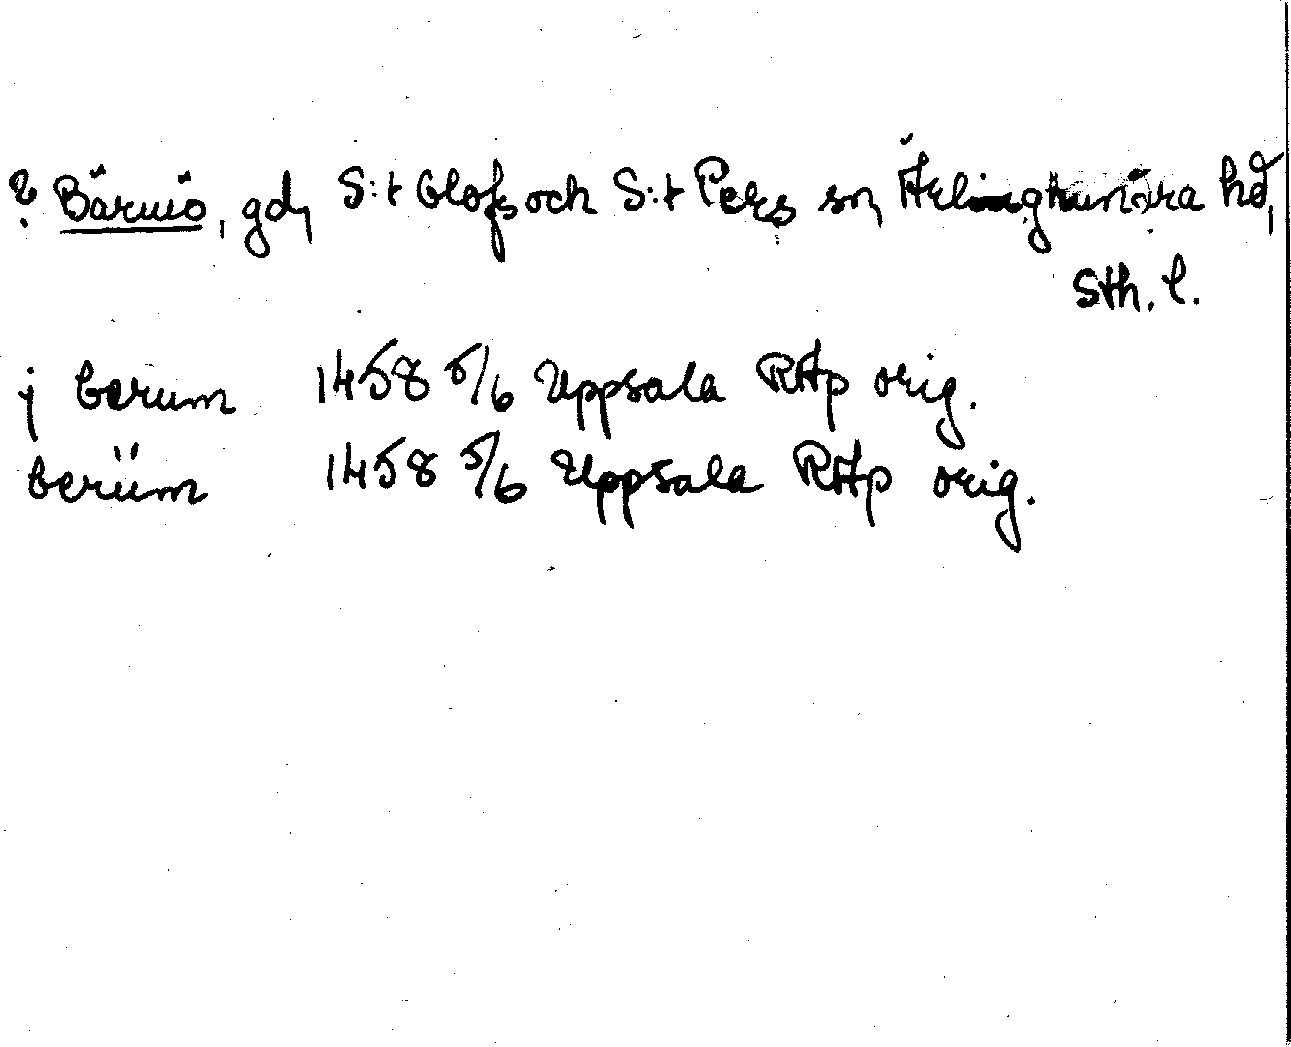 ? Bärmö, gd, S:t Olofs och S:t Pers sn, Ärlinghundra hd,
Sth. l.
j berum 1458 5/6 Uppsala RAp orig.
berüm 1458 5/6 Uppsala RAp orig.